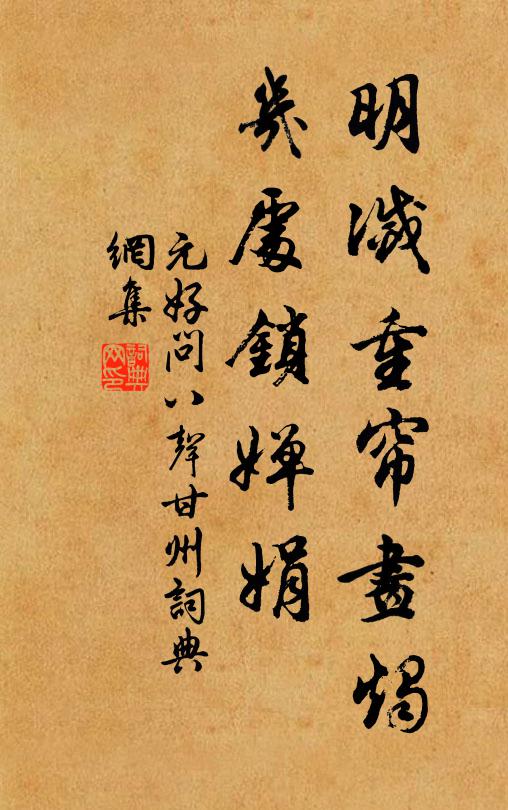 明滅重帘畫燭
幾處鎖嬋娟
元好問八聲甘州詞典
網集
詞典網印